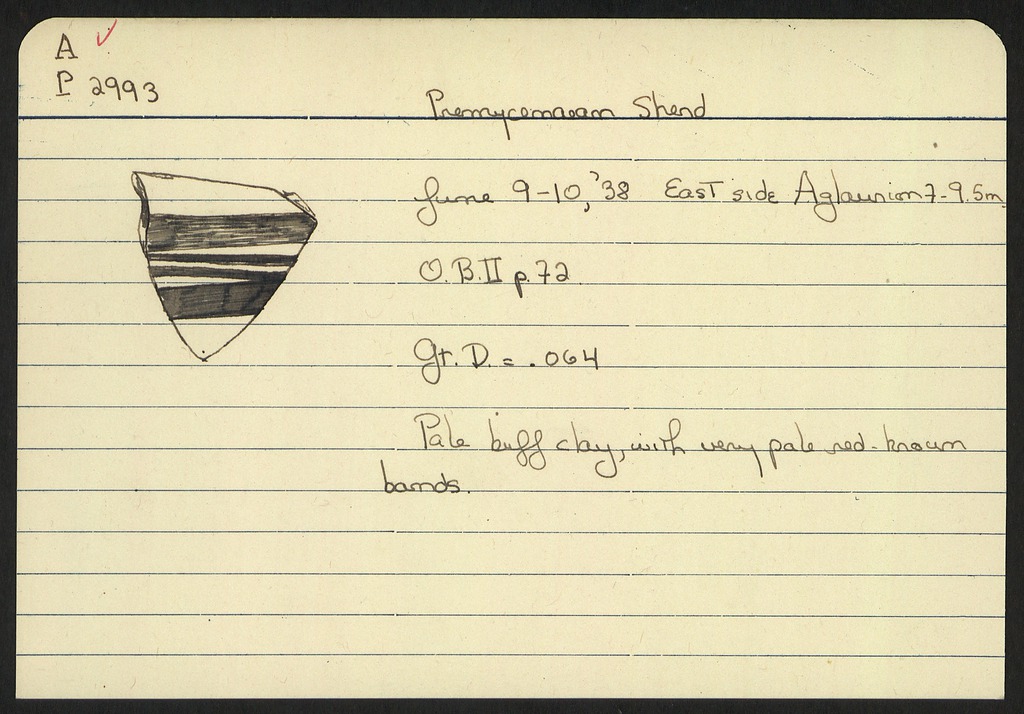 A ✓
P 2993
Premycenaean Sherd
June 9-10, '38 East side Aglaurion 7-9.5m
O.B.II p.72
Gr. D. = .064
Pale buff clay, with very pale red-brown
bands.